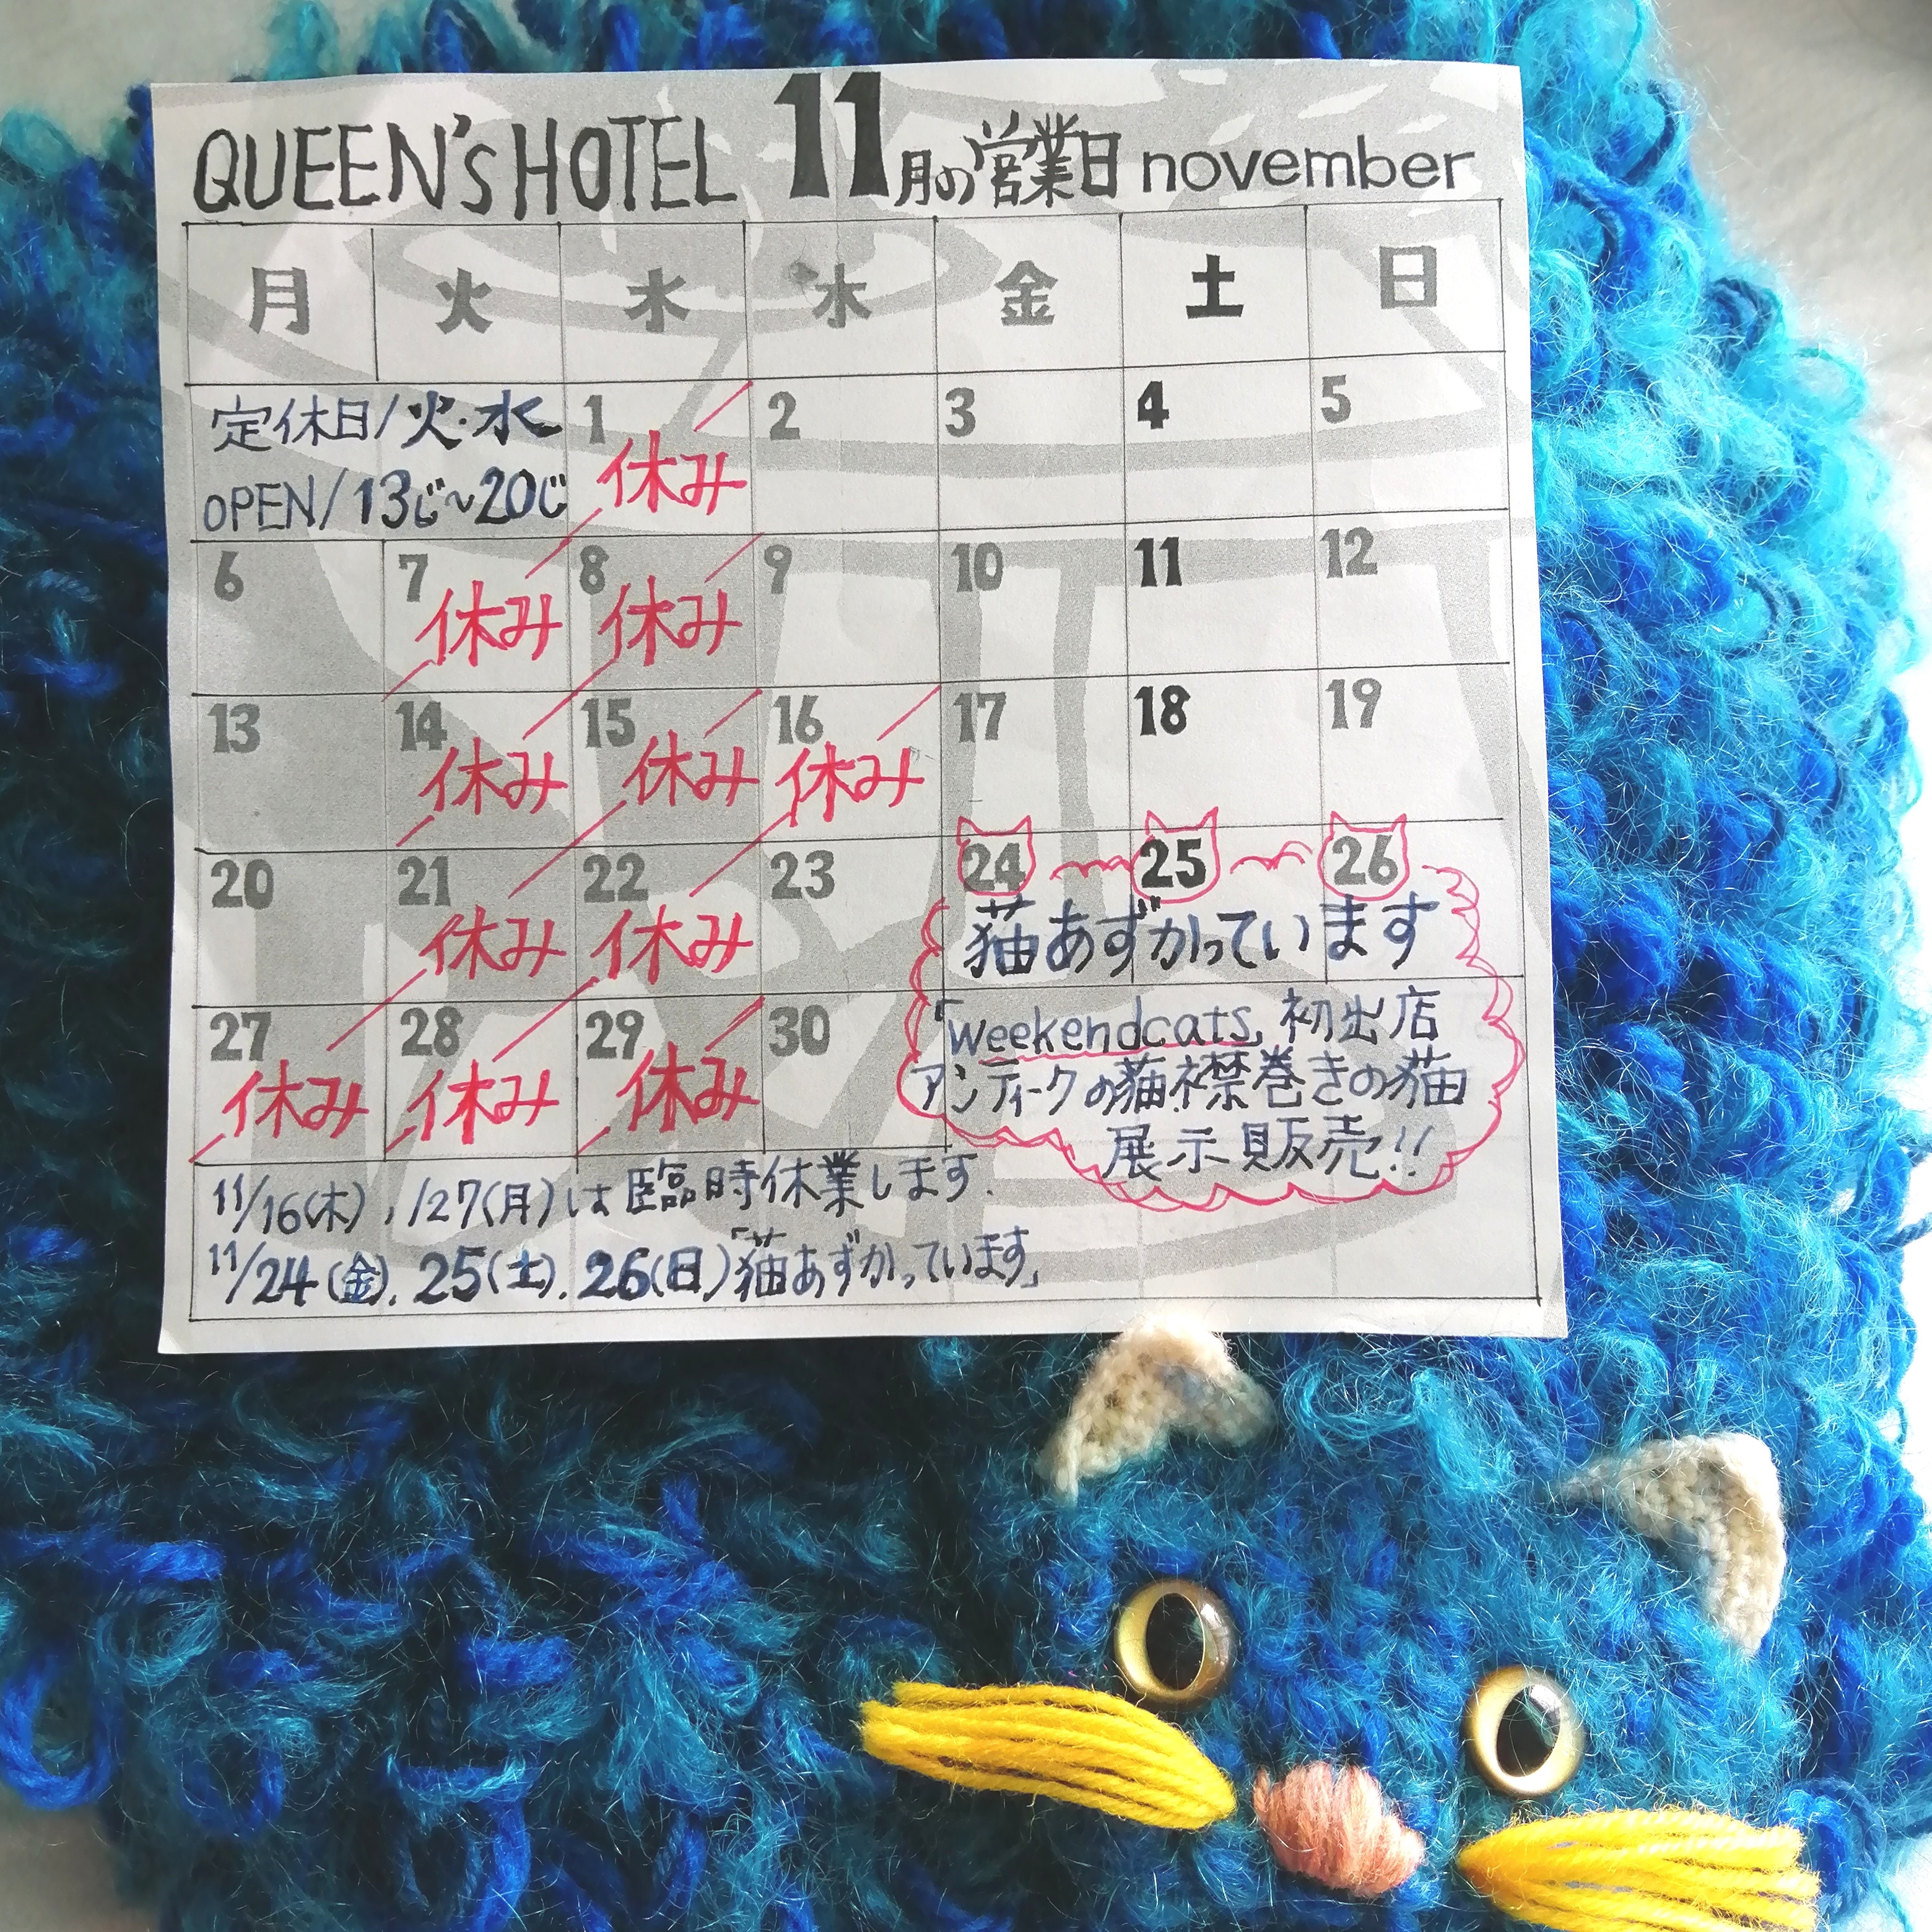 QUEEN'S HOTEL 11月の営業日 november
月 火 水 木 金 土 日
定休日/火・水
OPEN/13じ〜20じ
1 休み 2 3 4 5
6 7 休み 8 休み 9 10 11 12
13 14 休み 15 休み 16 休み 17 18 19
20 21 休み 22 休み 23 24 25 26
猫あずかっています
27 休み 28 休み 29 休み 30
「weekendcats」初出店
アンティークの猫襟巻きの猫
展示販売!!
11/16(木)、/27(月)は臨時休業します.
11/24(金). 25(土). 26(日)「猫あずかっています」